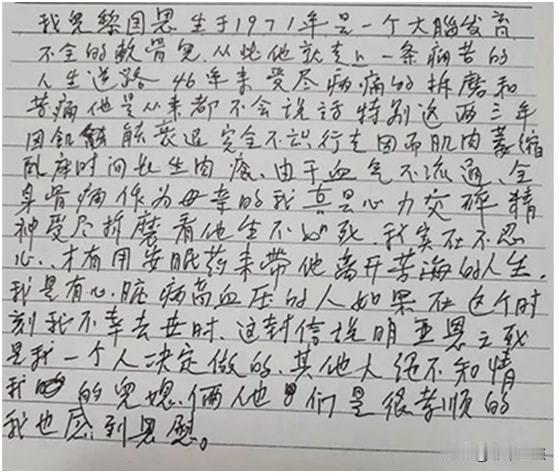 我兒黎国恩生于1971年是一个大腦发育
不全的軟骨兒.从此他就走上一条病苦的
人生道路46年来受尽病痛的折磨和
苦痛他是从来都不会说話特别这两三年
因肌能衰退完全不识行走因而肌肉萎缩
臥床时间长生肉瘡、由于血气不流通、全
身骨痛作为母亲的我真是心力交碎精
神受尽折磨看他生不如死.我实在不忍
心、才有用安眠药来带他离开苦海的人生.
我是有心脏病高血压的人如果在这个时
刻我不幸去世时、这封信说明亚恩之死
是我一个人决定做的、其他人绝不知情
我的兒媳、俩他们是很孝順的
我也感到恩慰。